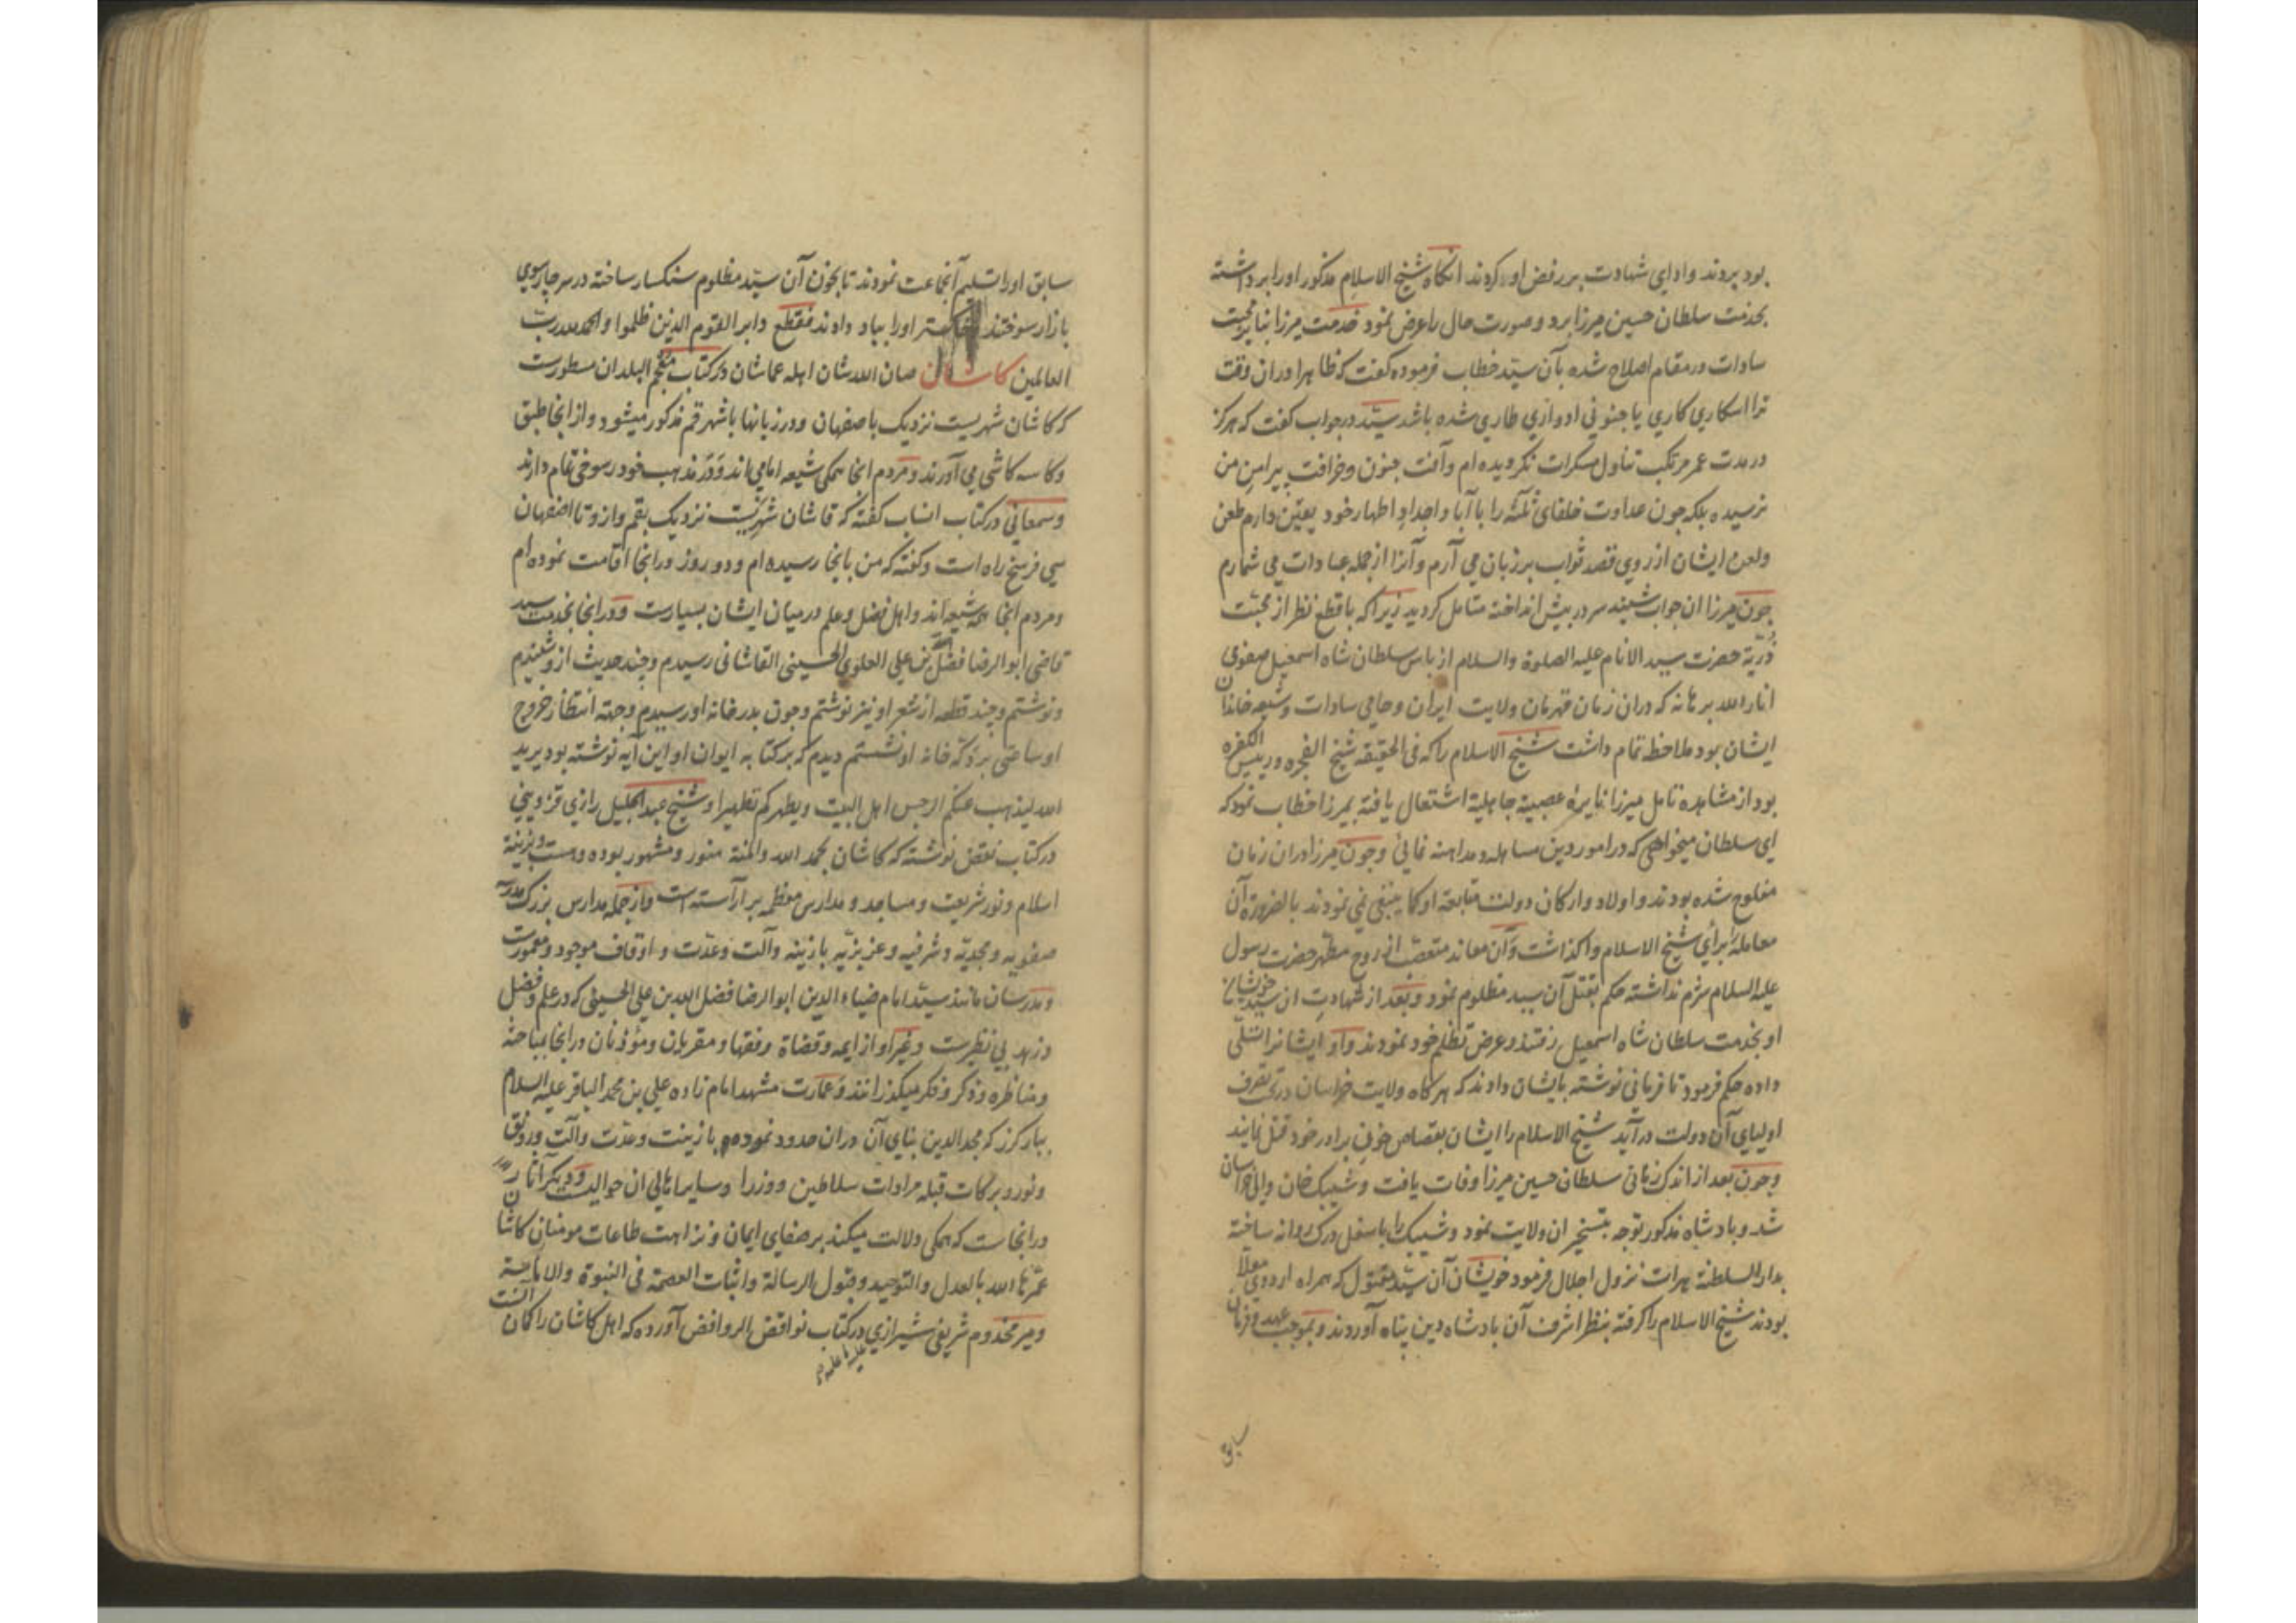 بود بردند و ادای شهادت بر رفض او کردند انکاه شیخ الاسلام مذکور او را برداشته
بخدمت سلطان حسین میرزا برد و صورت حال را عرض نمود خدمت میرزا بنابر محبت
سادات در مقام اصلاح شده بآن سید خطاب فرموده کفت که ظاهرا در ان وقت
ترا اسکاری کاری یا جنونی ادواری طاری شده باشد سید در جواب کفت که هرکز
در مدت عمر مرتکب تناول مسکرات نکردیده ام و آفت جنون و خرافت پیرامن من
نرسیده بلکه چون عداوت خلفای ثلثه را با آبا و اجداد اطهار خود یقین دارم طعن
و لعن ایشان از روی قصد ثواب بر زبان می آرم و آنرا از جمله عبادات می شمارم
چون میرزا ان جواب شنید سر در پیش انداخته متامل کردید زیرا که با قطع نظر از محبت
ذریة حضرت سید الانام علیه الصلوة والسلام از باس سلطان شاه اسمعیل صفوی
انار الله برهانه که دران زمان قهرمان ولایت ایران و حامی سادات و شیعه خاندان
ایشان بود ملاحظه تمام داشت شیخ الاسلام را که فی الحقیقه شیخ الفجره و رییس الکفره
بود از مشاهده تامل میرزا نایرهٔ عصبیة جاهلیة اشتعال یافته بمیرزا خطاب نمود که
ای سلطان میخواهی که در امور دین مساهله و مداهنه نمائی و چون میرزا دران زمان
مفلوج شده بودند و اولاد و ارکان دولت متابعة او کما ینبغی نمی نمودند بالضرورة آن
معامله را برای شیخ الاسلام واکذاشت و آن معاند متعصب از روح مطهر حضرت رسول
علیه السلام شرم نداشته حکم بقتل آن سید مظلوم نمود و بعد از شهادت ان سید خویشان
او بخدمت سلطان شاه اسمعیل رفتند و عرض تظلم خود نمودند و او ایشانرا تسلی
داده حکم فرمود تا فرمانی نوشته بایشان دادند که هرکاه ولایت خراسان در تحت تصرف
اولیای آن دولت در آید شیخ الاسلام را ایشان بقصاص خون برادر خود قتل نمایند
و چون بعد از اندک زمانی سلطان حسین میرزا وفات یافت و شیبک خان والی خراسان
شد و بادشاه مذکور توجه بتسخیر ان ولایت نمود و شیبک را باسفل درک روانه ساخته
بدار السلطنة هرات نزول اجلال فرمود خویشان آن سید مقتول که همراه اردوی معلا
بودند شیخ الاسلام را کرفته بنظر اشرف آن بادشاه دین پناه آوردند و بموجب عهد و فرمان
سابق
سابق او را تسلیم آنجماعت نمودند تا بخون آن سید مظلوم سنکسار ساخته در سر چارسوی
بازار سوختند و خاکستر او را بباد دادند فقطع دابر القوم الذین ظلموا والحمد لله رب
العالمین کاشان صان الله شان اهله عما شان در کتاب معجم البلدان مسطورست
که کاشان شهریست نزدیک باصفهان و در زبانها با شهر قم مذکور میشود و از انجا طبق
و کاسه کاشی می آورند و مردم انجا همکی شیعه امامی اند و در مذهب خود رسوخی تمام دارند
و سمعانی در کتاب انساب کفته که قاشان شهریست نزدیک بقم و از و تا اصفهان
سی فرسخ راه است و کفته که من بانجا رسیده ام و دو روز در انجا اقامت نموده ام
و مردم انجا همه شیعه اند و اهل فضل و علم در میان ایشان بسیارست و در انجا بخدمت سید
قاضی ابو الرضا فضل الله بن علی العلوی الحسینی القاشانی رسیدم و چند حدیث از و شنیدم
و نوشتم و چند قطعه از شعر او نیز نوشتم و چون بدر خانه او رسیدم و جهة انتظار خروج
او ساعتی بر دکه خانه او نشستم دیدم که بر کتابه ایوان او این آیه نوشته بود یرید
الله لیذهب عنکم الرجس اهل البیت و یطهرکم تطهیرا و شیخ عبد الجلیل رازی قزوینی
در کتاب نقض نوشته که کاشان بحمد الله والمنة منور و مشهور بوده و هست و بزینة
اسلام و نور شریعت و مساجد و مدارس معظم بر آراسته است و از جمله مدارس بزرک مدرسه
صفویه و مجدیه و شرفیه و عزیزیه با زینه و آلت و عدت و اوقاف موجود و معمورست
و مدرسان مانند سید امام ضیاء الدین ابو الرضا فضل الله بن علی الحسینی که در علم و فضل
و زهد بی نظیرست و غیر او از ایمه و قضاة و فقها و مقریان و مؤذنان در انجا بمباحثه
و مناظره و ذکر و فکر میکذرانند و عمارت مشهد امام زاده علی بن محمد الباقر علیه السلام
ببارکرز که مجد الدین بنای آن دران حدود نموده با زینت و عدت و آلت و رونق
و نور و برکات قبله مرادات سلاطین و وزرا و سایر اهالی ان حوالیست و دیکر آثار
در انجاست که همکی دلالت میکند بر صفای ایمان و نزاهت طاعات مومنان کاشان
عمرها الله بالعدل والتوحید و قبول الرسالة و اثبات العصمة فی النبوة والامامة
و میر مخدوم شریفی شیرازی در کتاب نواقض الروافض آورده که اهل کاشان را کمان آنست
علیه ما علیه